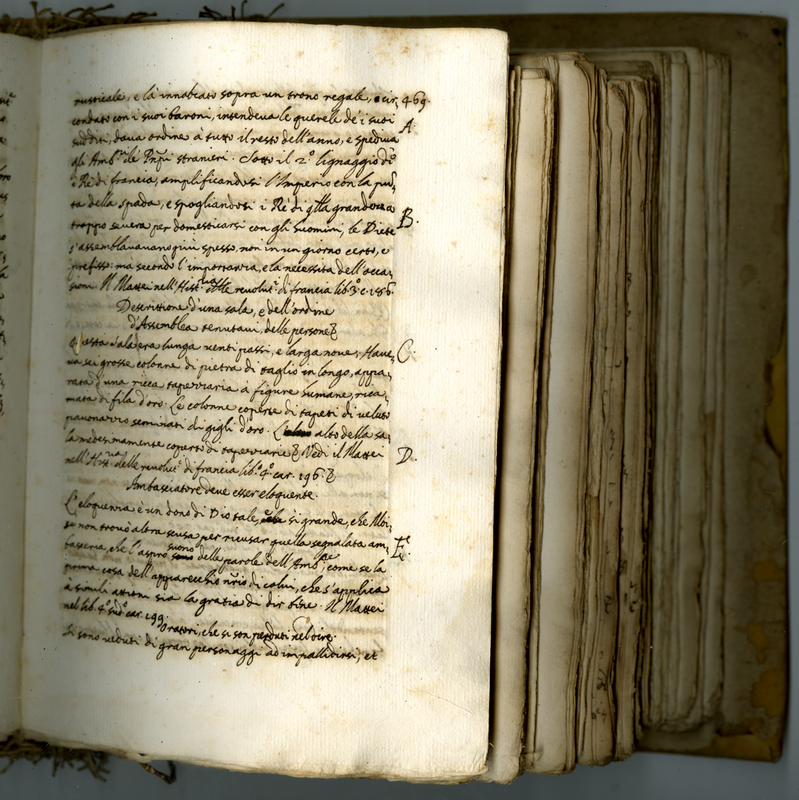 rusticale, e la innalzato sopra un trono regale, cir. 469.
condato con i suoi baroni, intendeva le querele de i suoi
A.
sudditi, dava ordine à tutto il resto dell'anno, e spediva
gli Amb.ri de Prñpi stranieri. Sotto il 2.º lignaggio di
i Rè di francia, amplificandosi l'Imperio con la pun,
ta della spada, e spogliandosi i Rè di q̃lla grandezza
B.
troppo severa per domesticarsi con gli huomini, le Diete
s'assemblavano più spesso, non in un giorno certo, e
prefisso: ma secondo l'importanza, e la necessità dell'occa,
sioni. Il Mattei nell'Hist.ria delle revolut.i di francia lib. 3.º c. 186.
Descrittione d'una sala, e dell'ordine
d'Assemblea tenutavi, delle persone
Questa Sala era lunga venti passi, e larga nove, Have,
C.
va sei grosse colonne di pietra di taglio in longo, appa,
rata d'una ricca tapezzaria à figure humane, rica,
mata di fila d'oro. Le colonne coperte di tapeti di veluto
pavonazzo seminati di gigli d'oro. L' alto della sa,
la medesimamente coperto di tapezzarie Vedi il Mattei
D.
nell'Hist.ria delle revolut.i di francia lib.º 4.º car. 196.
Ambasciatore deve esser eloquente.
L'eloquenza è un dono di Dio tale, si grande, che Moi,
se non trovò altra scusa per ricusar quella segnalata am,
E.
basceria, che l'aspro suono delle parole dell'Amb.re, come se la
prima cosa dell'apparecchio di colui, che s'applica
à simili attioni sia la gratia di dir bene. Il Mattei
nel lib. 4.º sud.º car. 199.
Oratori, che si son perduti nel dire.
Si sono veduti di gran personaggi ad impallidirsi, et